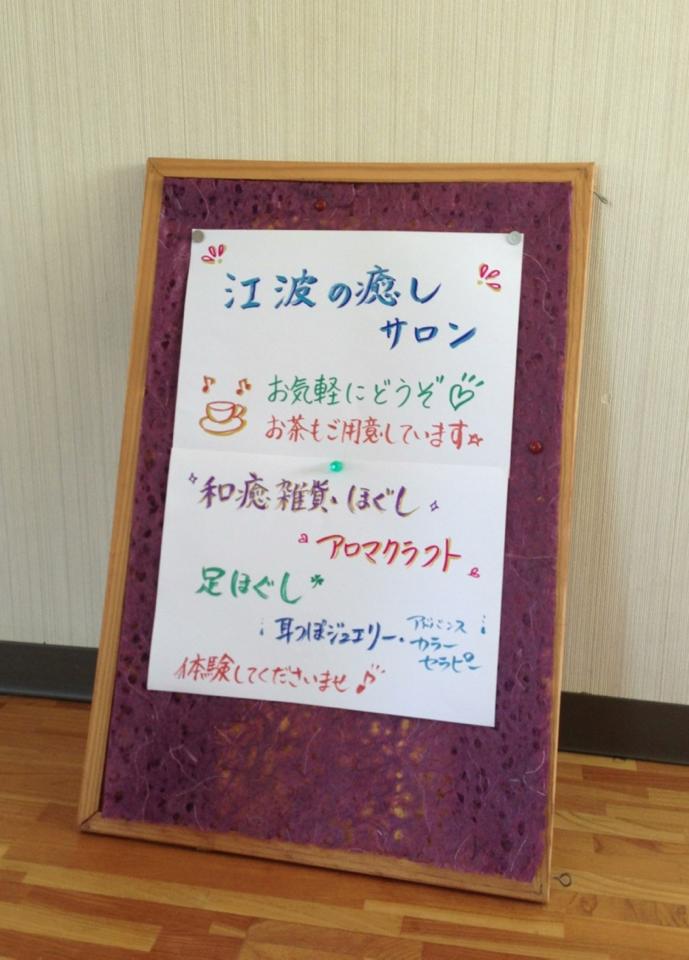 江波の癒し
サロン
お気軽にどうぞ
お茶もご用意しています
和癒雑貨・ほぐし
アロマクラフト
足ほぐし
耳つぼジュエリー・
アドバンス
カラー
セラピー
体験してくださいませ